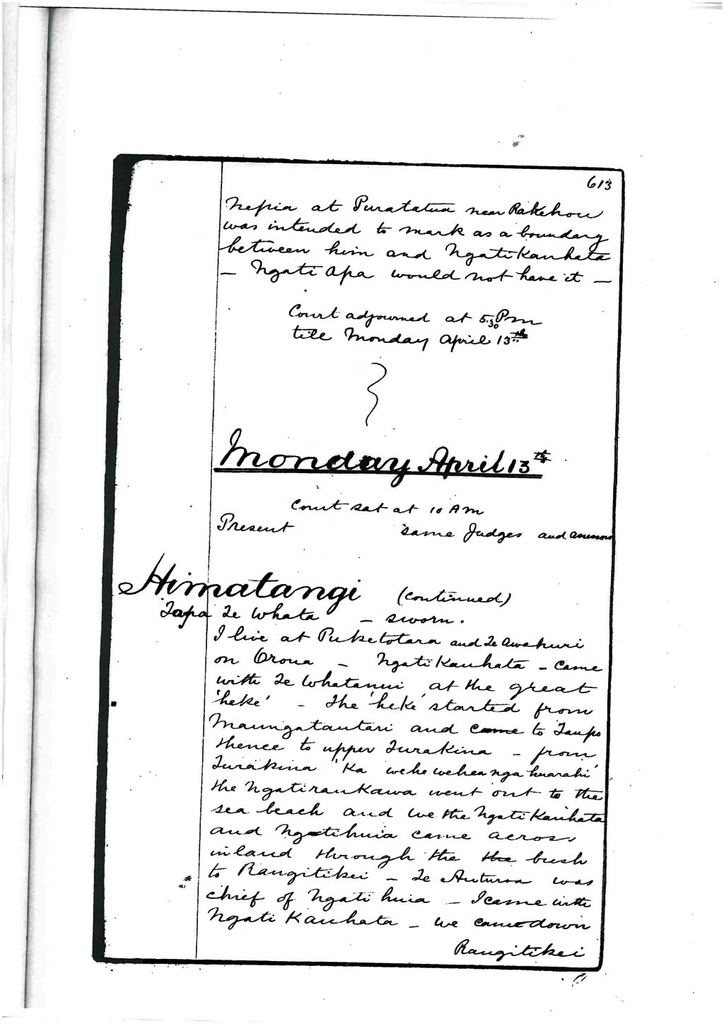 613
Nepia at Puratatua near Pakehou
was intended to mark as a boundary
between him and Ngatikauhata
— Ngati Apa would not have it —
Court adjourned at 5.30 Pm
till Monday April 13th
Monday April 13th
Court sat at 10 AM
Present same Judges and assessors
Himatangi (continued)
Tapa Te Whata — sworn.
I live at Puketotara and Te Awahuri
on Oroua — Ngati Kauhata — came
with Te Whatanui at the great
'heke' — The 'heke' started from
Maungatautari and came to Taupo
thence to upper Turakina — from
Turakina 'Ka wehewehea nga huarahi'
the Ngatiraukawa went out to the
sea beach and we the Ngati Kauhata
and Ngatihuia came across
inland through the the bush
to Rangitikei — Te was
chief of Ngati huia — I came with
Ngati Kauhata — we came down
Rangitikei